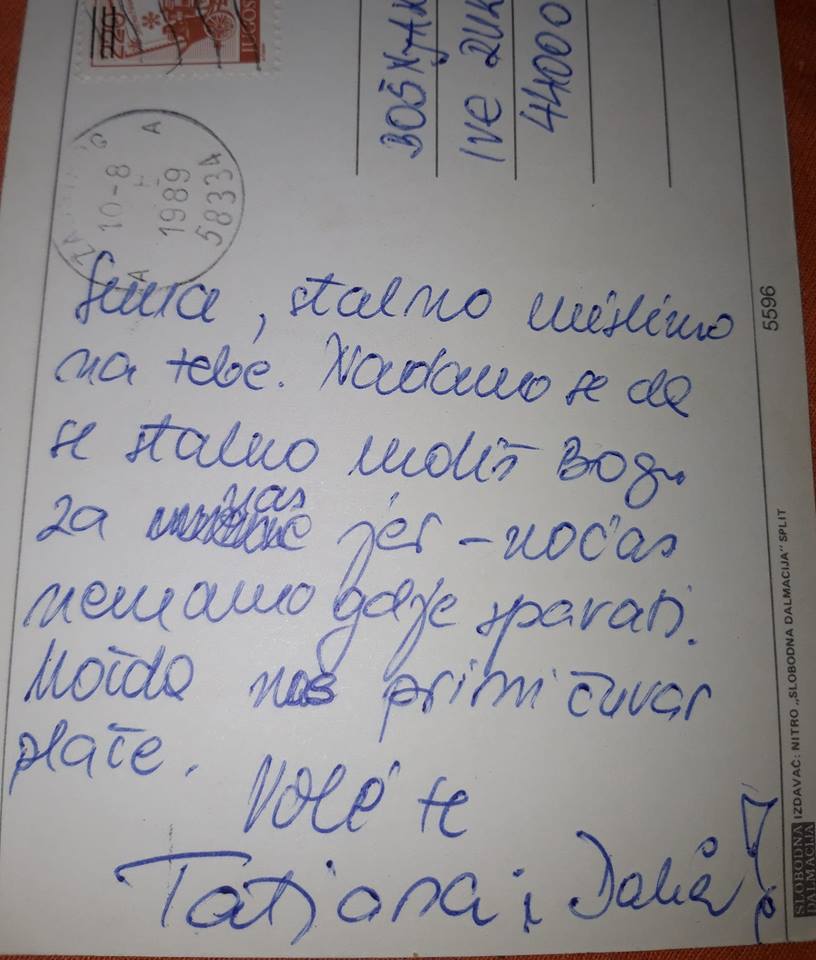 220
JUGOS
10-8
1989
58334
A
BOŠNJAK
IVE
44000
stalno mislimo
na tebe. Nadamo se da
se stalno moliš Bogu
za nas jer - noćas
nemamo gdje spavati.
Možda nas primi čuvar
plaže.
Vole te
Tatjana i
5596
IZDAVAČ: NITRO „SLOBODNA DALMACIJA" SPLIT
SLOBODNA
DALMACIJA